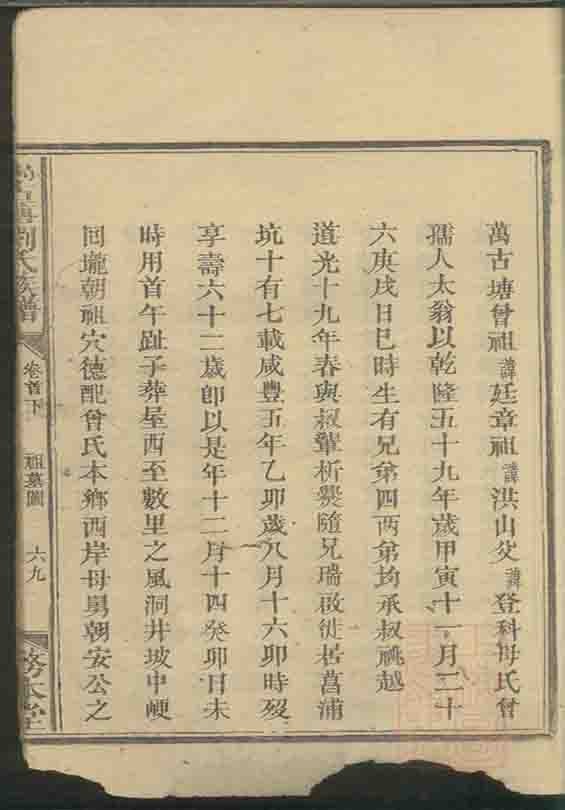 萬古塘曾祖諱廷章祖諱洪山父諱登科母氏曾
孺人太翁以乾隆五十九年歲甲寅十一月二十
六庚戌日巳時生有兄弟四两弟均承叔祧越
道光十九年春與叔輩析爨隨兄瑞啟徙居菖浦
坑十有七載咸豐五年乙卯歲八月十六卯時歿
享壽六十二歲卽以是年十二月十四癸卯日未
時用首午趾子葬屋西至數里之風洞井坡中峺
回壠朝祖穴德配曾氏本鄉西岸母舅朝安公之
劉氏族譜
卷首下
祖墓圖
六九
務本堂